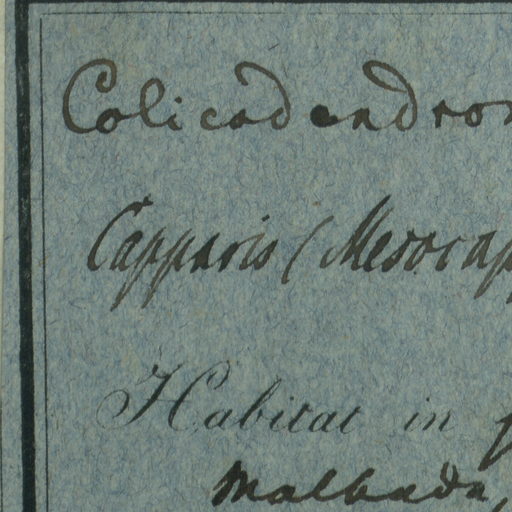 Colicodendron
Capparis (Mesocap
Habitat in
Malbada,